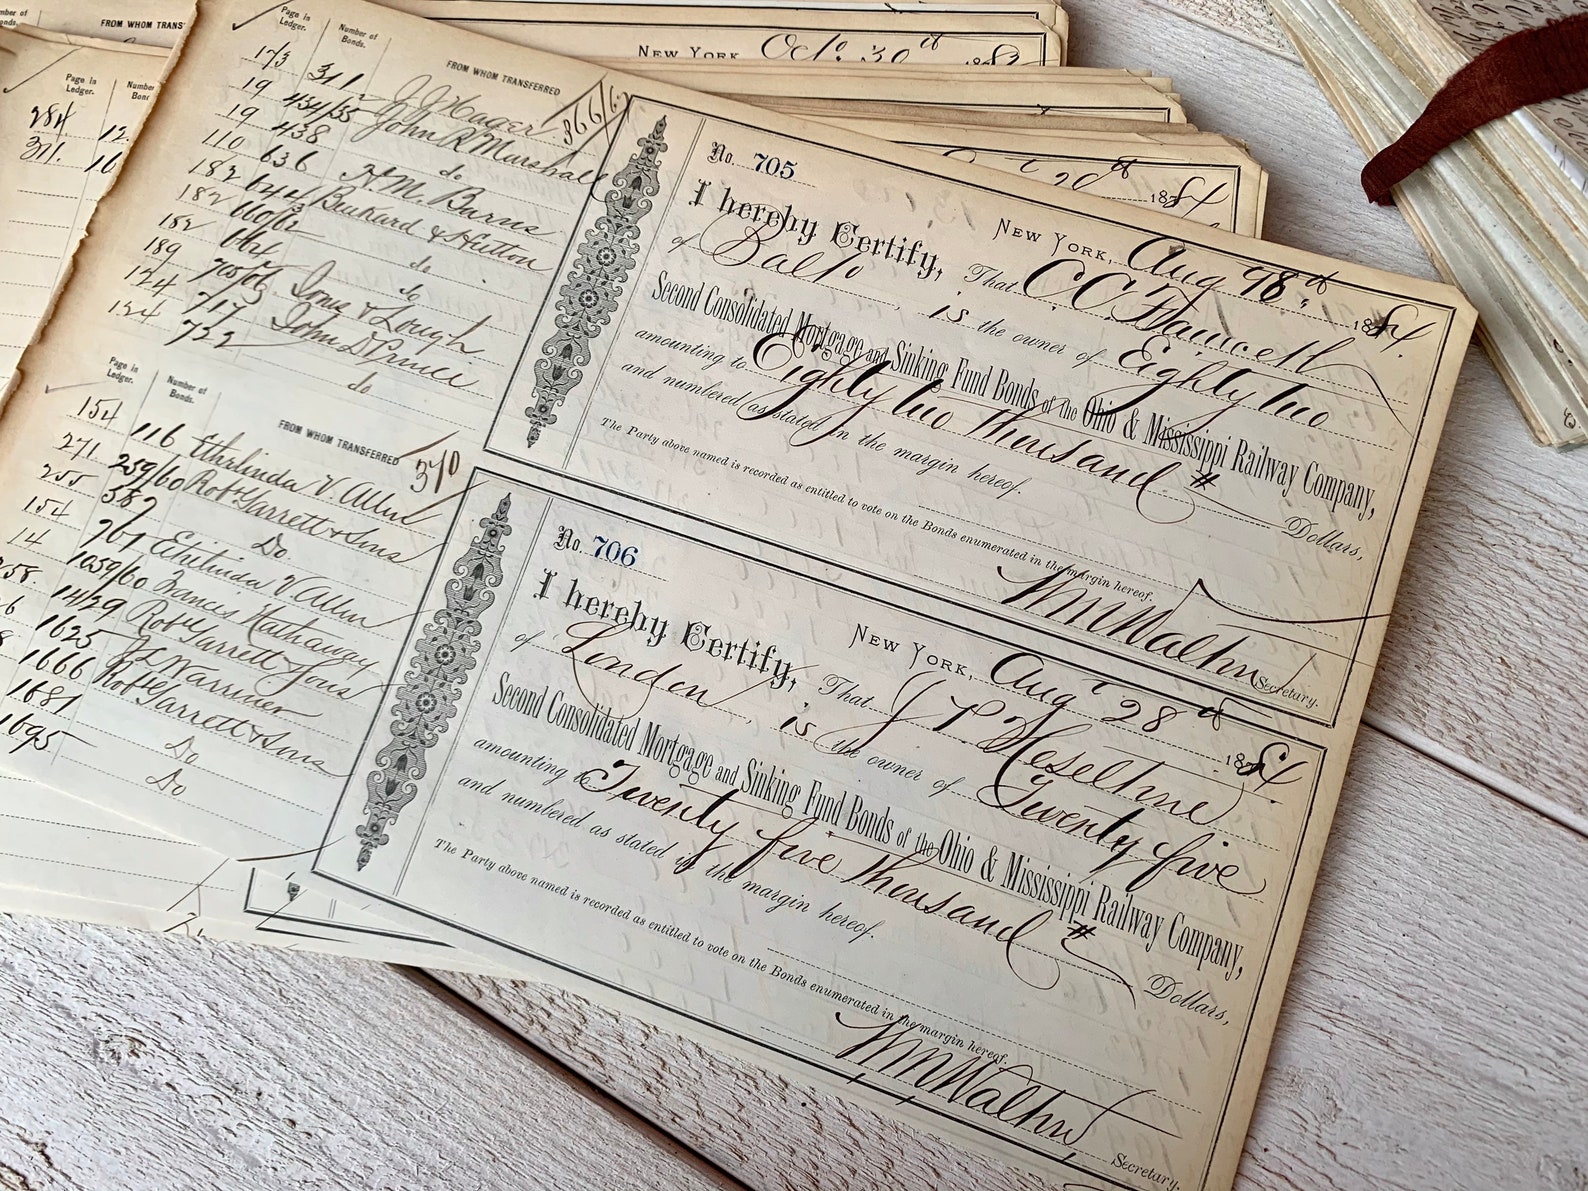 Page in Ledger.
Number of Bonds.
FROM WHOM TRANSFERRED
366/
173 311 J J Hager
19 434/35 John R Marshall
19 438 do
110 636 H M. Barns
182 644 Beukard & Hutton
182 660/62 do
182 664 do
189 705/06
124 717 John D Prince
124 722 do
No. 705
New York, Aug 28th 1884.
I hereby Certify, That C C.
of Balto, is the owner of Eighty two
Second Consolidated Mortgage and Sinking Fund Bonds of the Ohio & Mississippi Railway Company,
amounting to Eighty two thousand Dollars,
and numbered as stated in the margin hereof.
The Party above named is recorded as entitled to vote on the Bonds enumerated in the margin hereof.
Secretary.
Page in Ledger.
Number of Bonds.
FROM WHOM TRANSFERRED
370
154 116 Etherlinda V. Allen
271. 259/60 Robt Garrett & Sons
255 382 Do
154 761 Ethelinda V Allen
14 1059/60 Frances Hathaway
258. 1429 Robt Garrett & Sons
1625 J L Warner
1666 Robt Garrett & Sons
1681 Do
1695 Do
No. 706
New York, Aug 28th 1884.
I hereby Certify, That J P Heseltine
of London, is the owner of Twenty five
Second Consolidated Mortgage and Sinking Fund Bonds of the Ohio & Mississippi Railway Company,
amounting to Twenty five thousand Dollars,
and numbered as stated in the margin hereof.
The Party above named is recorded as entitled to vote on the Bonds enumerated in the margin hereof.
Secretary.
FROM WHOM TRANS
Page in Ledger.
284 12.
311. 16
New York, Oct. 30th
20th 1884